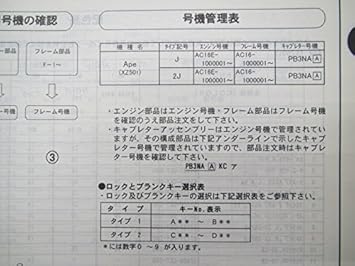 号機の確認
号機管理表
フレーム部品
F－1～
フレーム号機の確認
機種名 タイプ記号 エンジン号機 フレーム号機 キャブレター号機
Ape (XZ501) J AC16E-1000001～ AC16-1000001～ PB3NA A
2J AC16E-1000001～ AC16-1000001～ PB3NA A
・エンジン部品はエンジン号機・フレーム部品はフレーム号機
を確認のうえ部品注文をして下さい。
・キャブレターアッセンブリーはエンジン号機で管理されています
が、その構成部品は下記アンダーラインで示したキャブ
レター号機で管理されていますので、部品注文時はキャブレ
ター号機を確認して下さい。
PB3NA A KC ア
③
●ロックとブランクキー選択表
・ロック及びブランクキーの選択は下記選択表をご参照下さい。
タイプ キーNo.表示
タイプ 1 A＊＊ ～ B＊＊
タイプ 2 C＊＊ ～ D＊＊
＊には数字0～9が入ります。